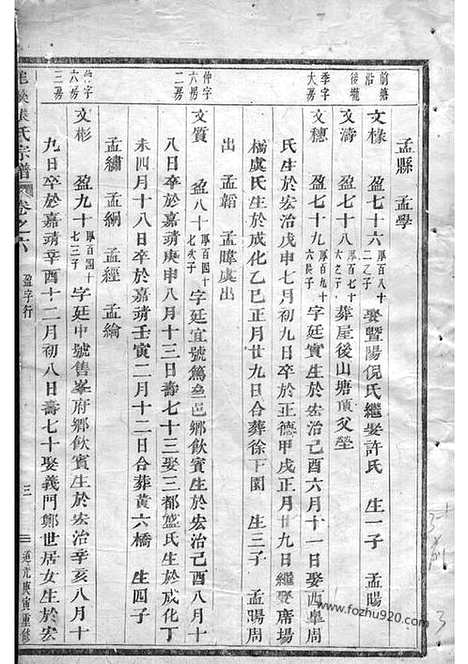 孟縣　孟學
前蔡沿 文樣　盈七十六 厚百八十二之子 娶暨陽倪氏繼娶許氏　生一子　孟暘
後壠 文濤　盈七十八 厚百七十六之子 葬屋後山塘頂父塋
季字大房 文穗　盈七十九 厚百九十六長子 字廷實生於宏治己酉六月十一日娶西皐周
氏生於宏治戊申七月初九日卒於正德甲戌正月廿九日繼娶席塲
橋虞氏生於成化乙巳正月廿九日合葬徐下園　生三子　孟暘周
出　孟韜　孟暐虞出
仲字六房二房 文質　盈八十 厚百四十七次子 字廷宜號篤叁邑鄉飲賓生於宏治己酉八月十
八日卒於嘉靖庚申八月十三日壽七十三娶三都盛氏生於成化丁
未四月十八日卒於嘉靖壬寅二月十二日合葬黃六橋　生四子
孟繡　孟綱　孟經　孟綸
仲字六房三房 文彬　盈九十 厚百四十七三子 字廷中號售峯府鄉飲賓生於宏治辛亥八月十
九日卒於嘉靖辛酉十二月初八日壽七十娶義門鄭世居女生於宏
氏宗譜　卷之六　盈字行　三　道光庚寅重修
www.fozhu920.com